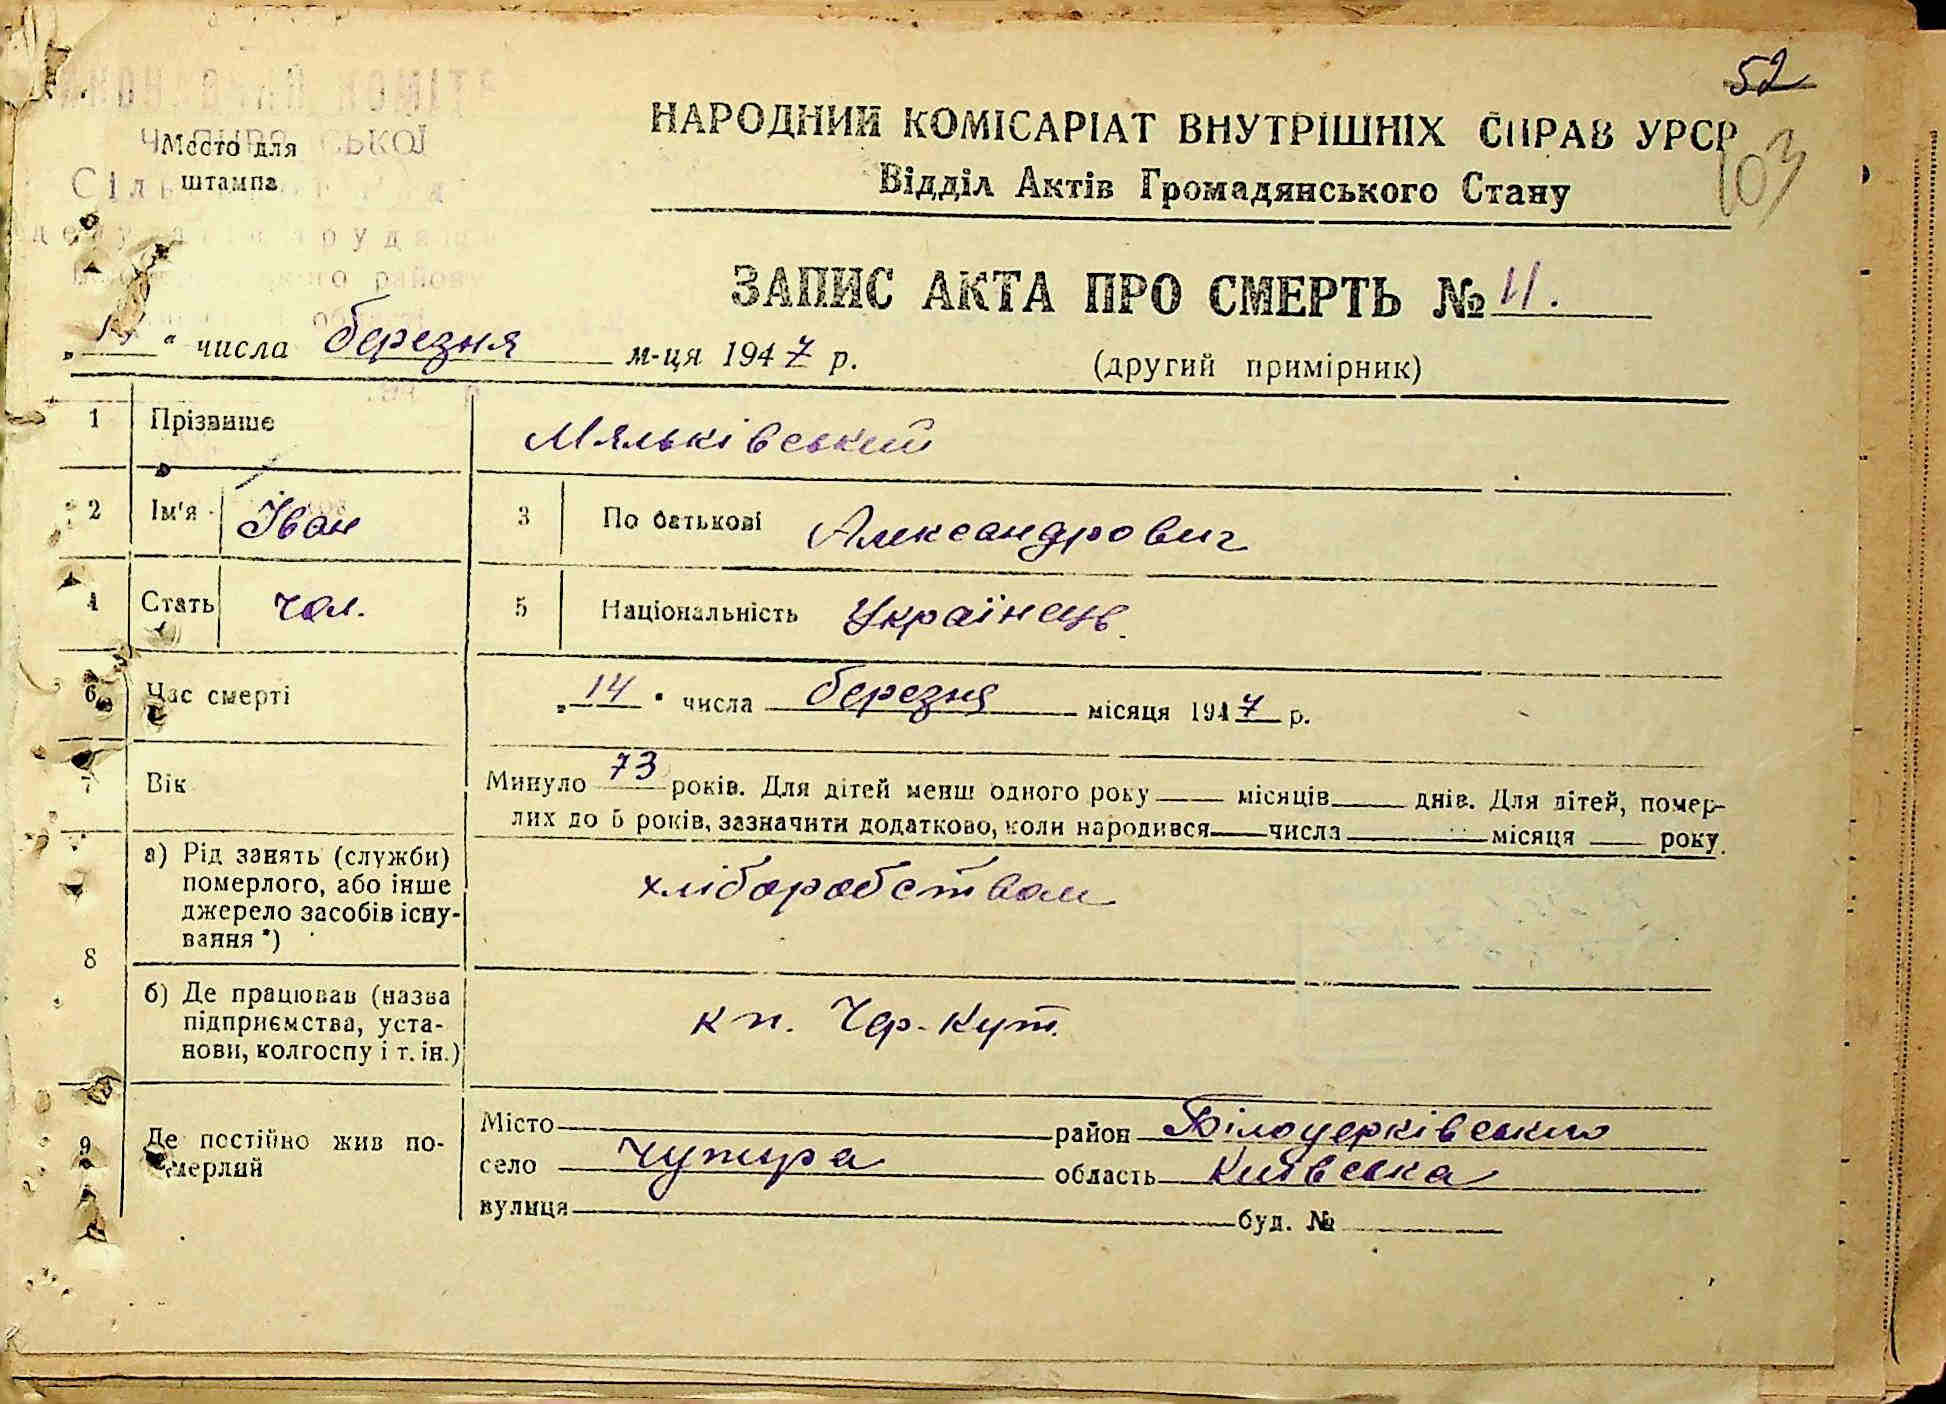 52
103
НАРОДНИЙ КОМІСАРІАТ ВНУТРІШНІХ СПРАВ УРСР
Відділ Актів Громадянського Стану
Место для
штампа
ської
району
ЗАПИС АКТА ПРО СМЕРТЬ № 11.
числа березня м-ця 1947 р.
(другий примірник)
1 Прізвище Мяльківський
2 Ім'я Іван 3 По батькові Александрович
4 Стать чол. 5 Національність Українець.
6 Час смерті „14" числа березня місяця 1947 р.
7 Вік Минуло 73 років. Для дітей менш одного року місяців днів. Для дітей, помер-
лих до 5 років, зазначити додатково, коли народився числа місяця року.
8 а) Рід занять (служби)
померлого, або інше
джерело засобів існу-
вання *)
хліборобством
б) Де працював (назва
підприємства, уста-
нови, колгоспу і т. ін.)
к п. Чер-Кут.
9 Де постійно жив по-
мерлий
Місто район Білоцерківського
село Чупира область Київська
вулиця буд. №